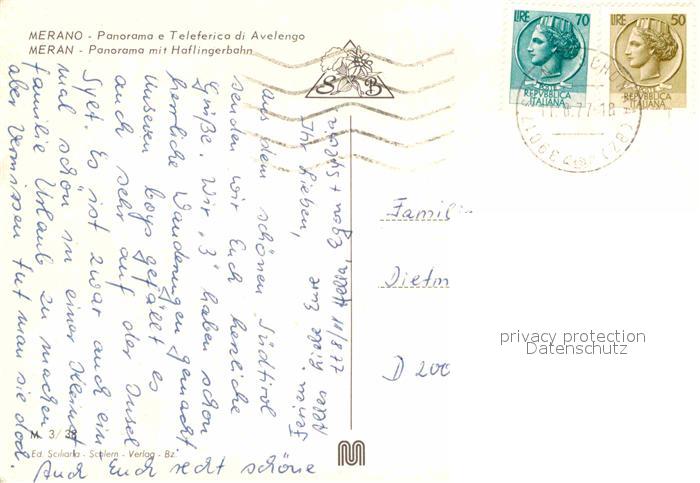 MERANO - Panorama e Teleferica di Avelengo
MERAN - Panorama mit Haflingerbahn
LIRE 70
POSTE
REPVBBLICA
ITALIANA
LIRE 50
POSTE
REPVBBLICA
ITALIANA
S B
11/8/77
Ihr Lieben,
aus dem schönen Südtirol
senden wir Euch herzliche
Grüße. Wir "3" haben schon
herrliche Wanderungen gemacht.
Unseren boys gefällt es
auch sehr auf der Insel
Sylt. Es ist zwar auch ein
mal schön in einer Kleinst
familie Urlaub zu machen
aber vermissen tut man sie doch.
Auch Euch recht schöne
Ferien.
Alles Liebe Eure
Hella, Egon +
Familie
Dietm
D 200
privacy protection
Datenschutz
M 3/38
Ed. Sciliaria - Schlern - Verlag - Bz.